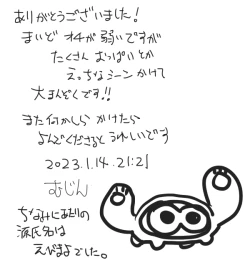 ありがとうございました!
まいど オチが弱いですが
たくさん おっぱいとか
えっちなシーン かけて
大まんぞくです!!
また何かしら かけたら
よんでくださると うれしいです
2023.1.14.21:21
むじん
ちなみにあたりの
源氏名は
えびまよでした。